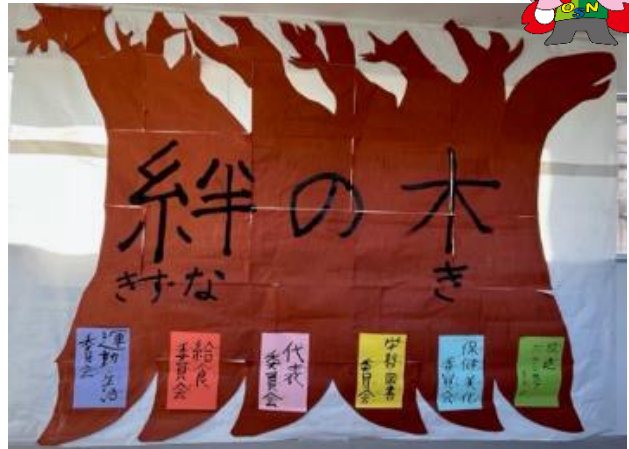 OSN
絆の木
きずな き
運動・生活
委員会
給食
委員会
代表
委員会
学習図書
委員会
保健美化
委員会